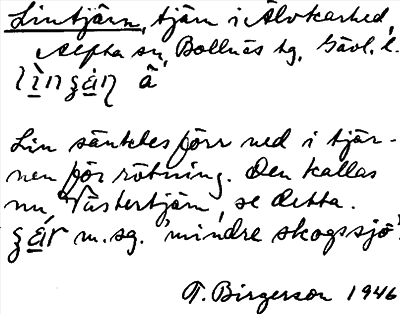 Lintjärn, tjärn i Älvkarhed,
Alfta sn, Bollnäs tg, Gävl. l.
å
Lin sänktes förr ned i tjär-
nen för rötning. Den kallas
nu Västertjärn, se detta.
m. sg. 'mindre skogssjö'.
T. Birgerson 1946